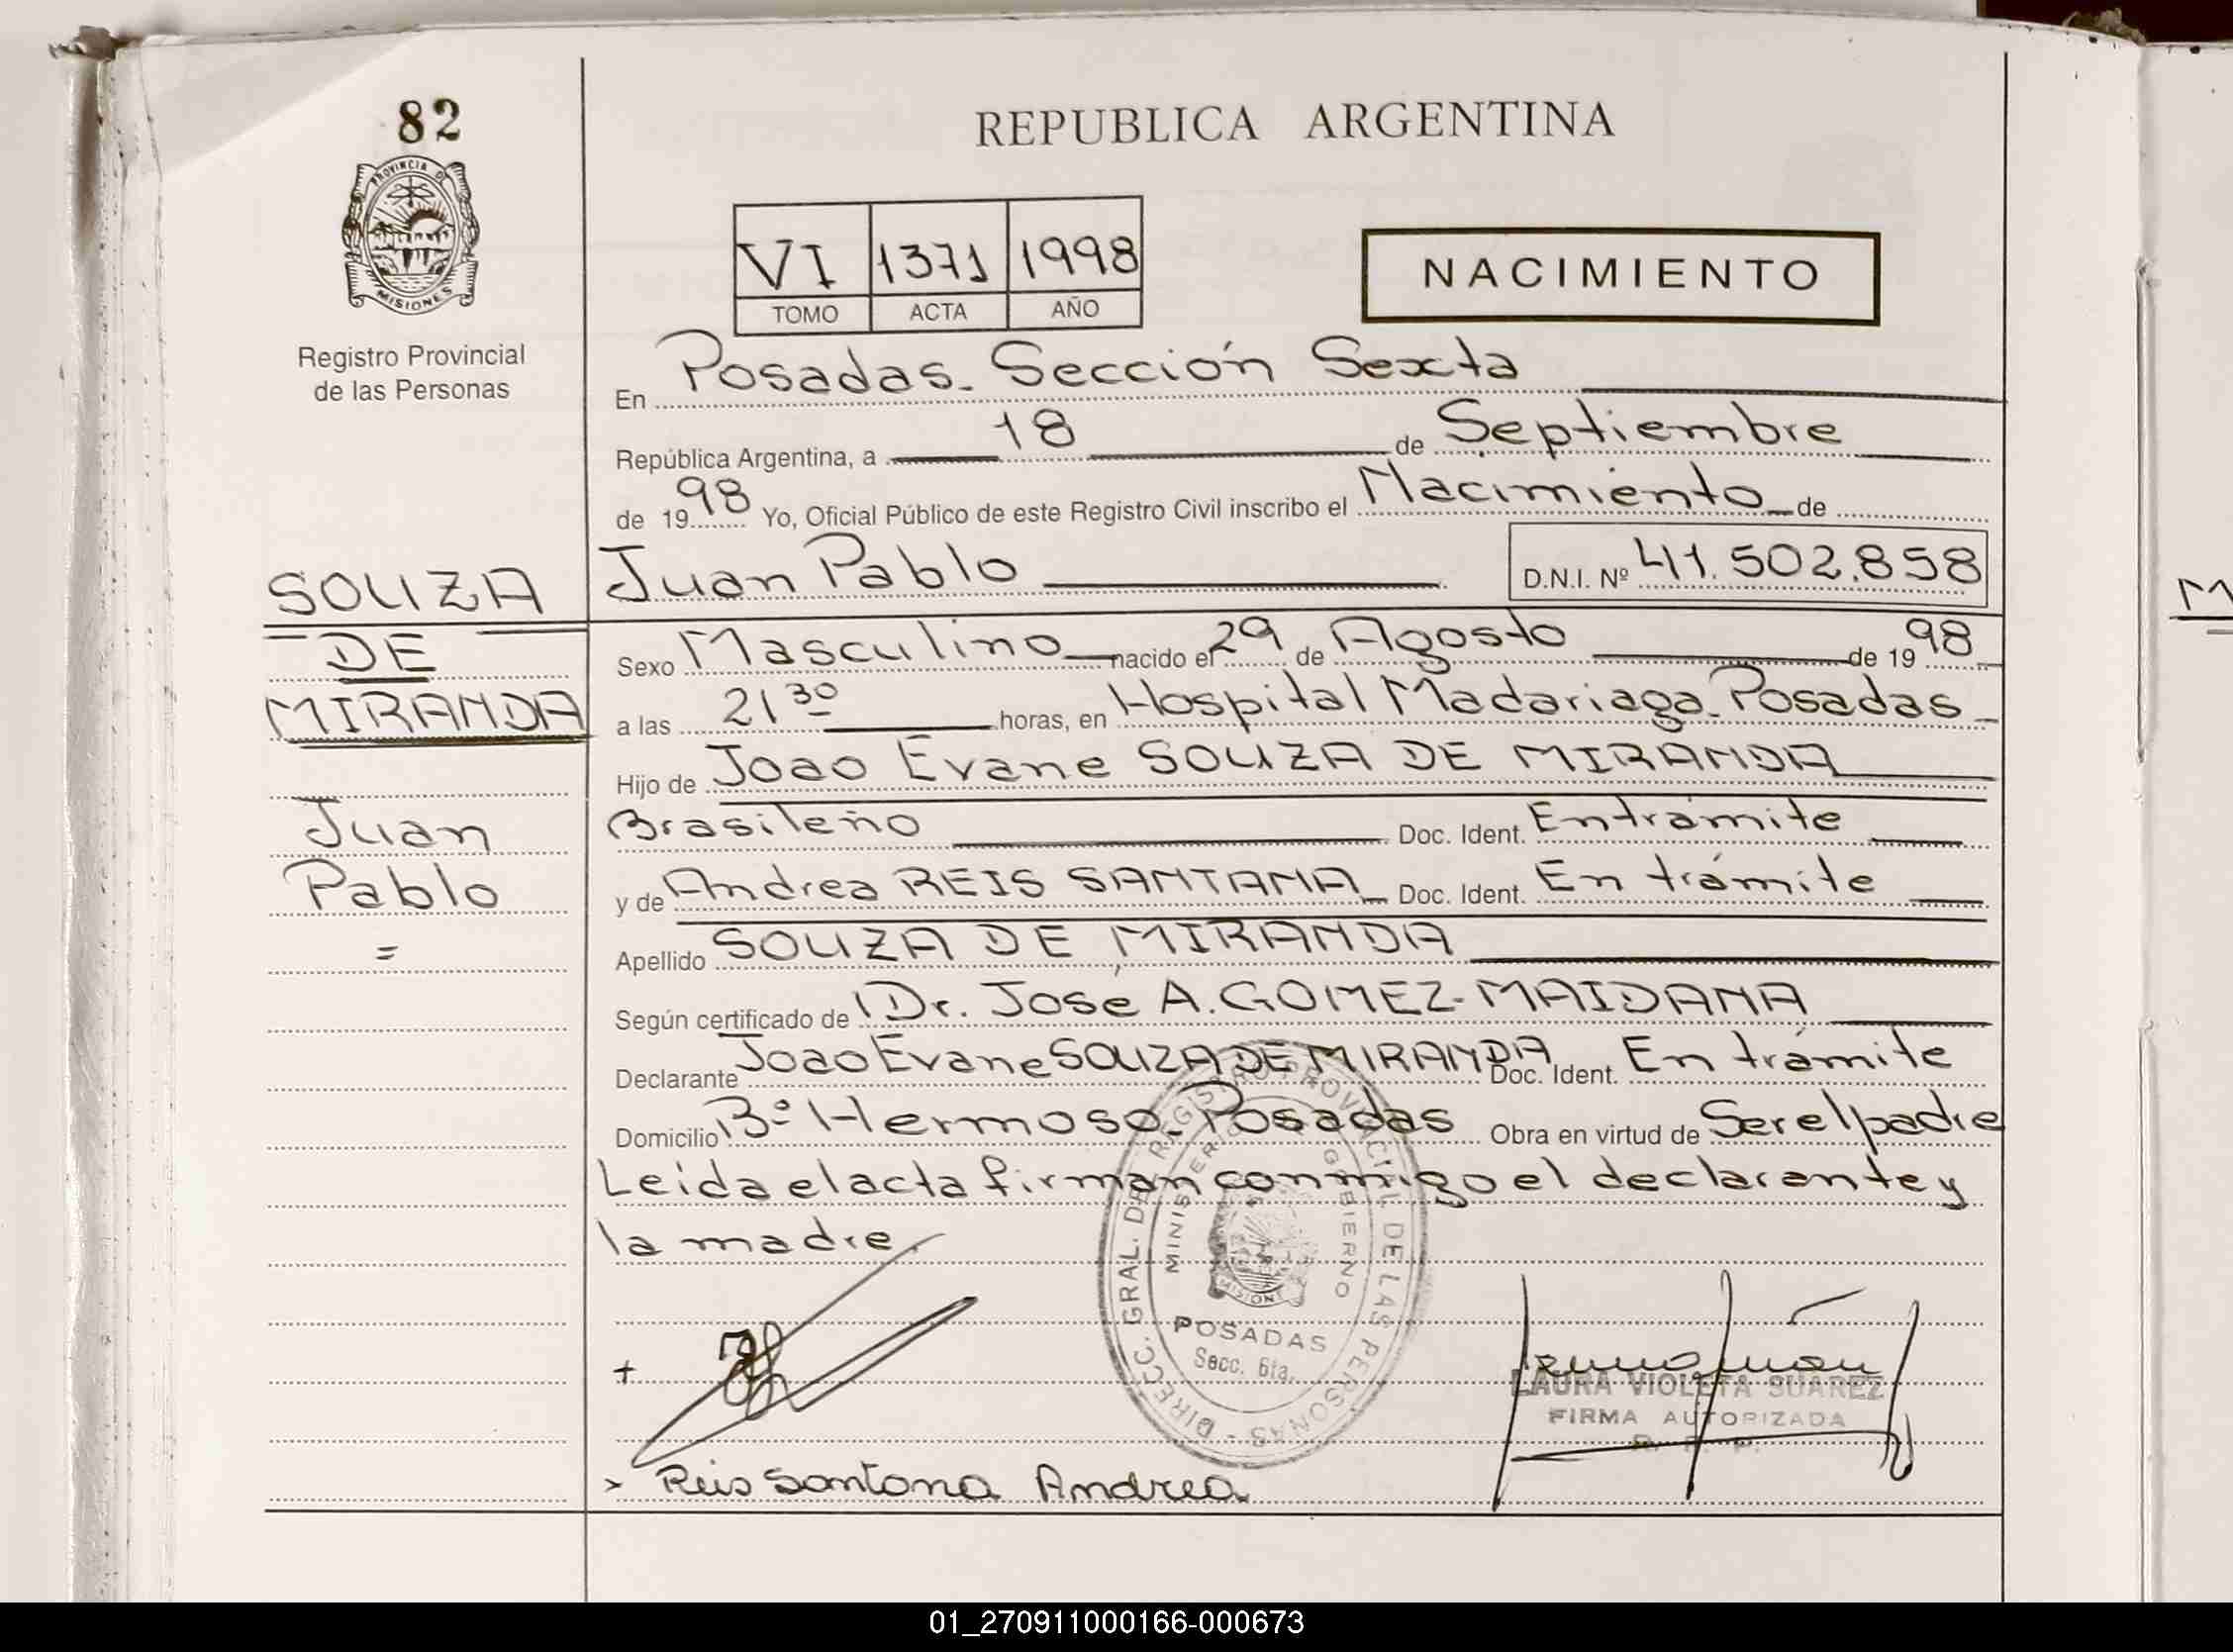 82
REPUBLICA ARGENTINA
PROVINCIA DE MISIONES
VI 1371 1998
TOMO ACTA AÑO
NACIMIENTO
Registro Provincial
de las Personas
En Posadas. Sección Sexta
República Argentina, a 18 de Septiembre
de 1998 Yo, Oficial Público de este Registro Civil inscribo el Nacimiento de
SOUZA Juan Pablo D.N.I. Nº 41.502.858
DE Sexo Masculino nacido el 29 de Agosto de 1998
MIRANDA a las 21 30 horas, en Hospital Madariaga. Posadas
Hijo de Joao Evane SOUZA DE MIRANDA
Juan Brasileño Doc. Ident. En trámite
Pablo y de Andrea REIS SANTANA Doc. Ident. En trámite
= Apellido SOUZA DE MIRANDA
Según certificado de Dr. José A. GOMEZ-MAIDANA
Declarante Joao Evane SOUZA DE MIRANDA Doc. Ident. En trámite
Domicilio Bº Hermoso. Posadas Obra en virtud de Ser el padre
Leída el acta firman conmigo el declarante y
la madre.
DIRECC. GRAL. DEL REGISTRO PROVINCIAL DE LAS PERSONAS
MINISTERIO GOBIERNO
MISIONES
POSADAS
Secc. 6ta.
LAURA VIOLETA SUAREZ
FIRMA AUTORIZADA
R. P. P.
Reis Santana Andrea
M
01_270911000166-000673